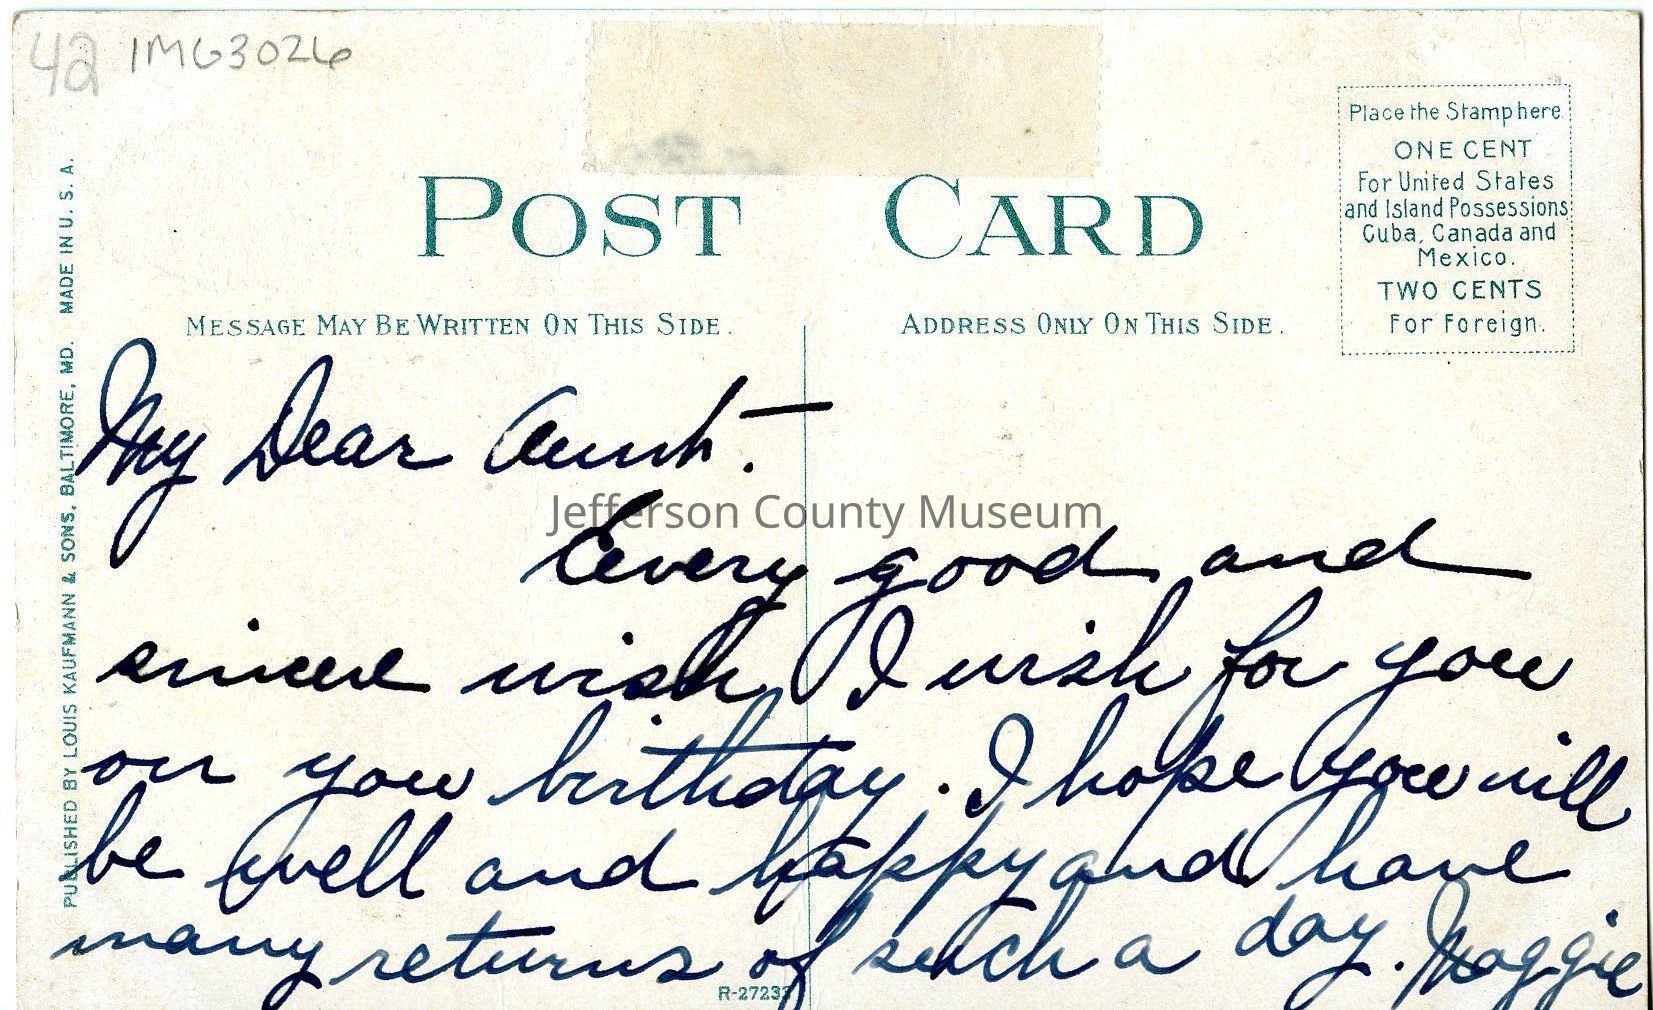 42 IMG3026
POST CARD
Place the Stamp here
ONE CENT
For United States
and Island Possessions
Cuba, Canada and
Mexico.
TWO CENTS
For Foreign.
MESSAGE MAY BE WRITTEN ON THIS SIDE.
ADDRESS ONLY ON THIS SIDE.
PUBLISHED BY LOUIS KAUFMANN & SONS, BALTIMORE, MD. MADE IN U. S. A.
My Dear Aunt.
Jefferson County Museum
Every good and
sincere wish I wish for you
on you birthday. I hope you will
be well and happy and have
many returns of such a day. Maggie
R-27233